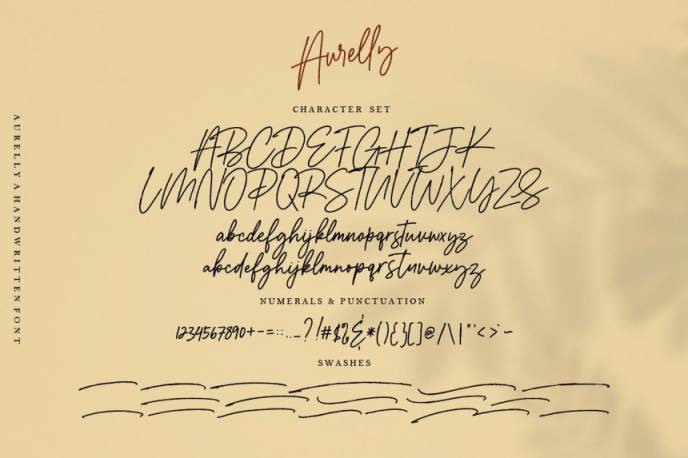 Aurelly
CHARACTER SET
ABCDEFGHIJK
LMNOPQRSTUVWXYZS
abcdefghijklmnopqrstuvwxyz
abcdefghijklmnopqrstuvwxyz
NUMERALS & PUNCTUATION
1234567890+-=::.._?!#$%&*(){}[]@/\|"'<>`~
SWASHES
AURELLY A HANDWRITTEN FONT